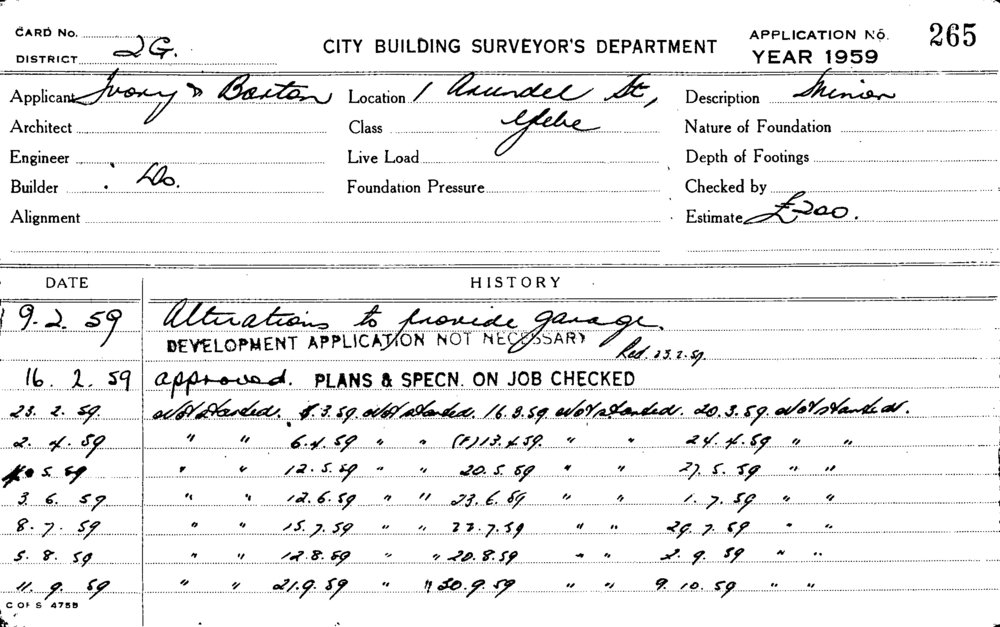 CARD No.
DISTRICT 2G.
CITY BUILDING SURVEYOR'S DEPARTMENT
APPLICATION No. 265
YEAR 1959
Applicant Ivory & Barton Location 1 Arundel St, Description Minor
Architect Class Glebe Nature of Foundation
Engineer Live Load Depth of Footings
Builder Do. Foundation Pressure Checked by
Alignment Estimate £200.
DATE HISTORY
9.2.59 Alterations to provide garage.
DEVELOPMENT APPLICATION NOT NECESSARY Red. 23.2.59.
16.2.59 approved. PLANS & SPECN. ON JOB CHECKED
23.2.59. Not Started. 8.3.59 Not Started. 16.3.59 Not Started. 20.3.59 Not Started.
2.4.59 " " 6.4.59 " " (F)13.4.59. " " 24.4.59 " "
5.59 " " 12.5.59 " " 20.5.59 " " 27.5.59 " "
3.6.59 " " 12.6.59 " " 23.6.59 " " 1.7.59 " "
8.7.59 " " 15.7.59 " " 22.7.59 " " 29.7.59 " "
5.8.59 " " 12.8.59 " " 20.8.59 " " 2.9.59 " "
11.9.59 " " 21.9.59 " " 30.9.59 " " 9.10.59 " "
C OF S 475B